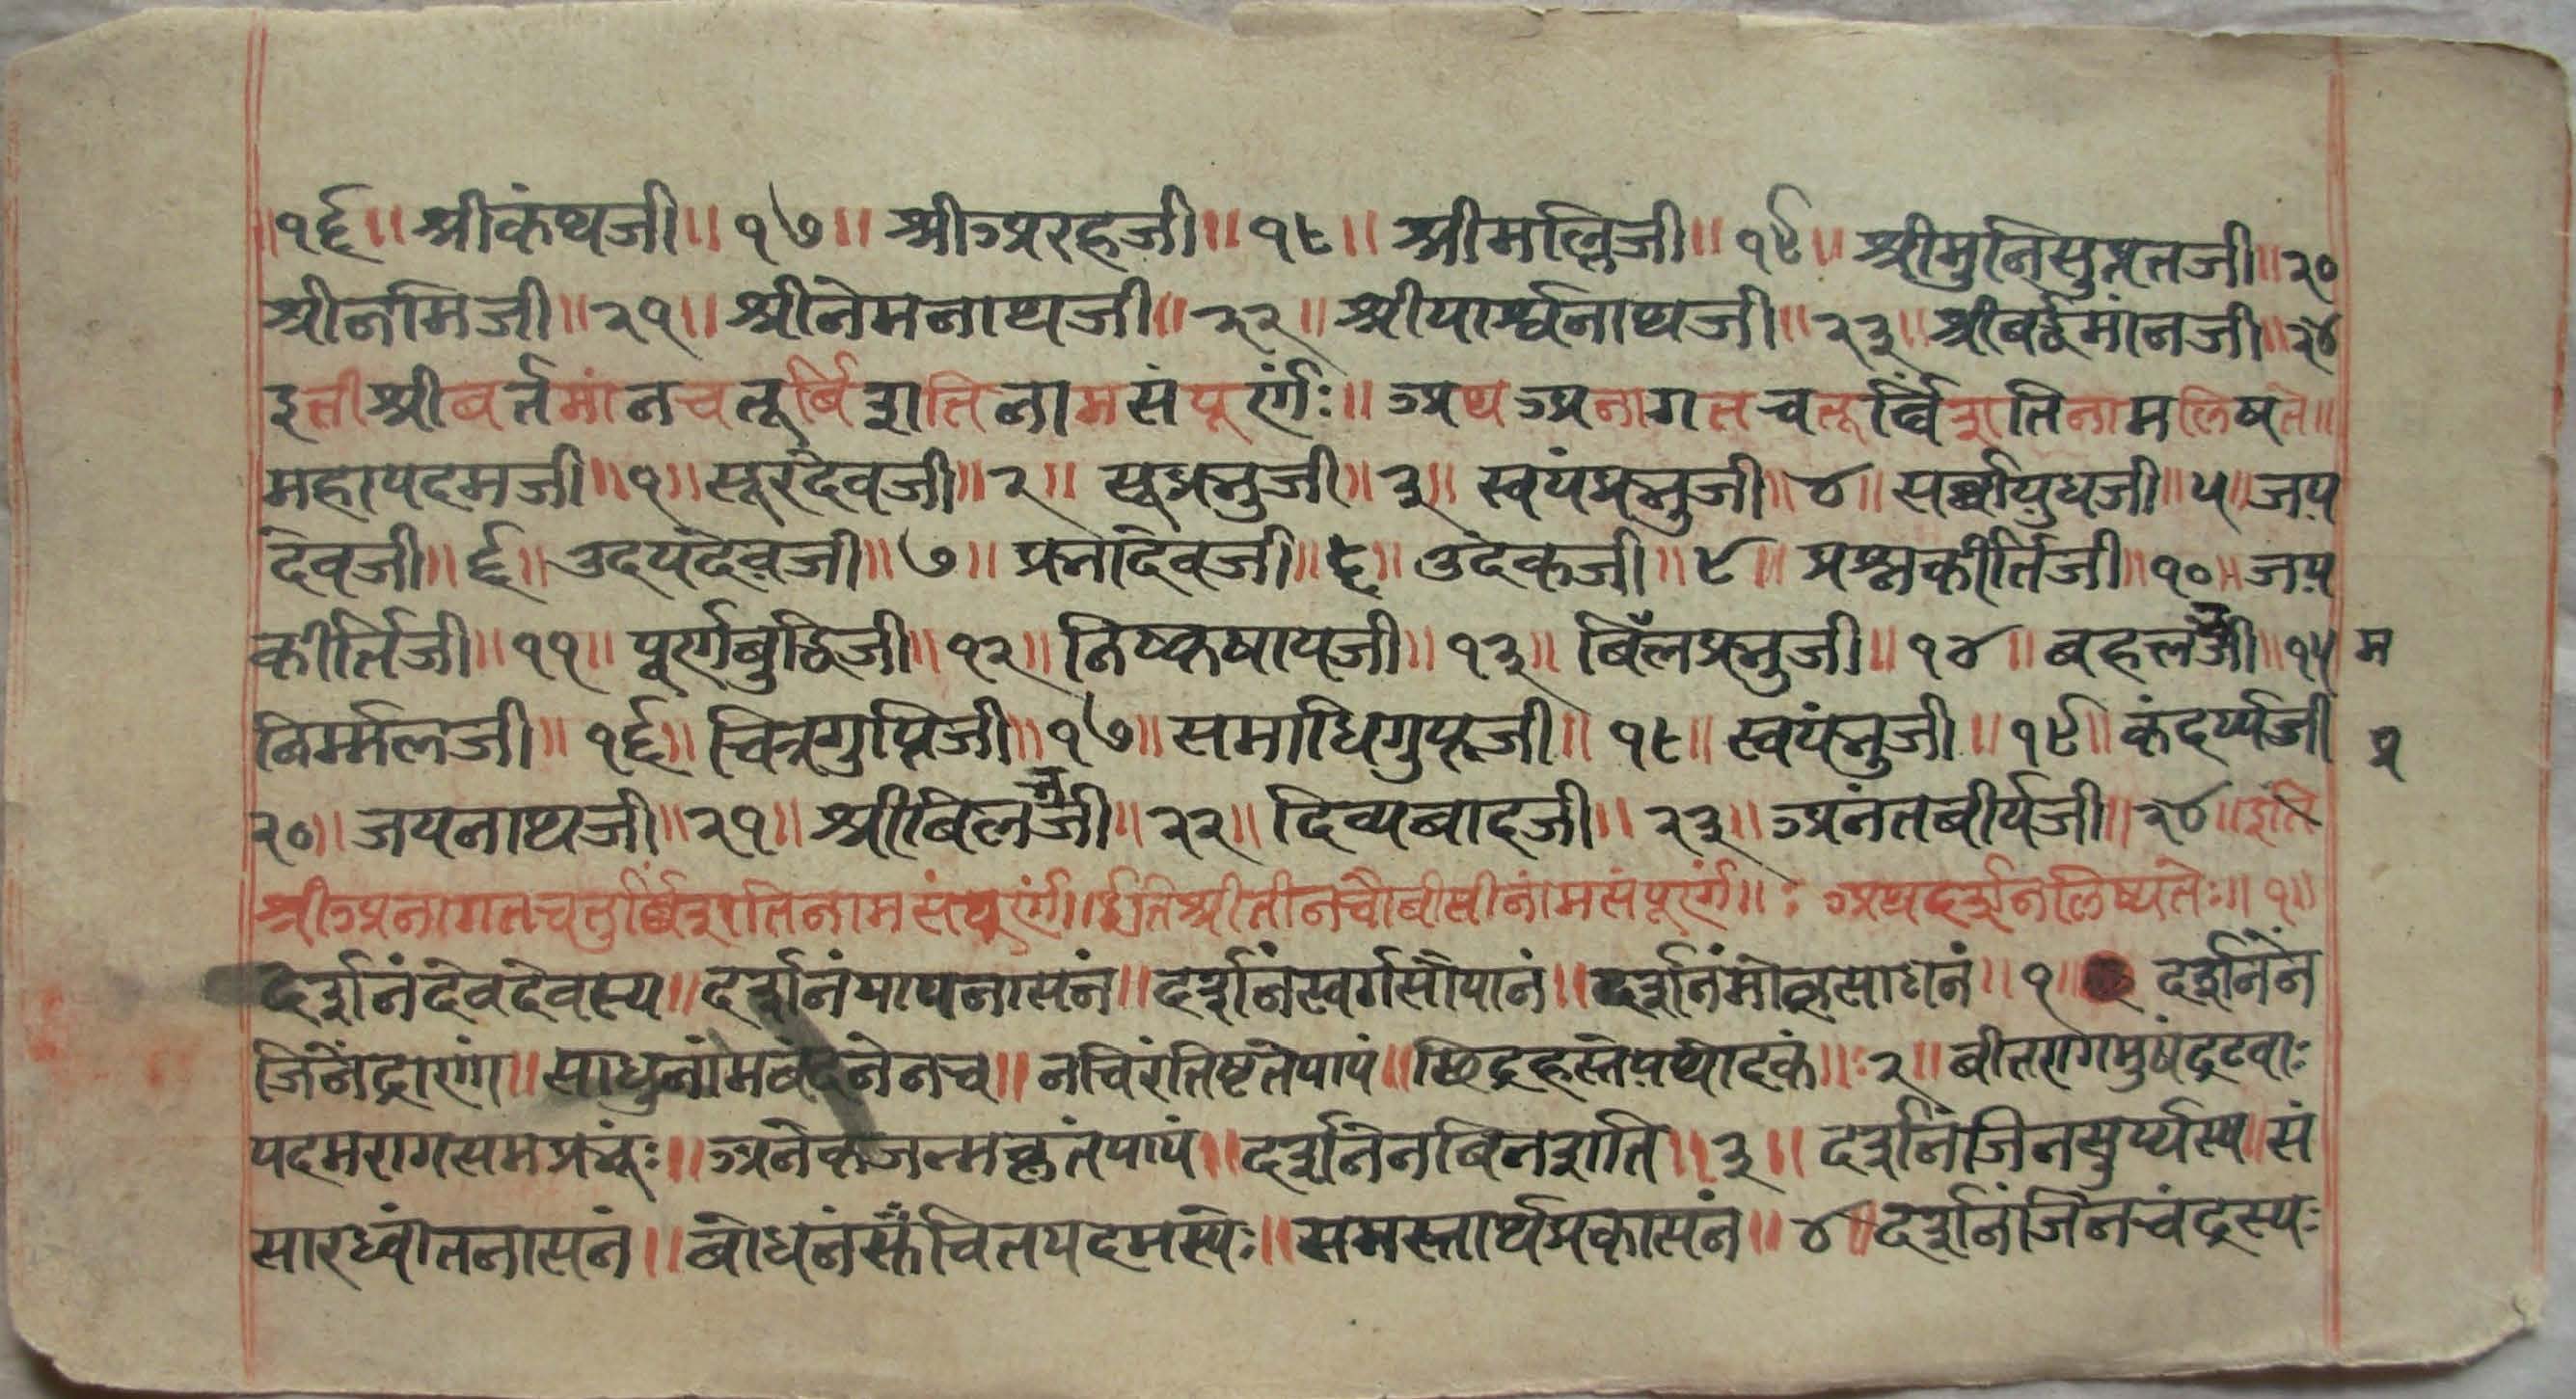 ॥१६॥ श्रीकंथजी॥ १७॥ श्रीअरहजी॥ १८॥ श्रीमल्लिजी॥ १९॥ श्रीमुनिसुव्रतजी॥२०
श्रीनमिजी॥२१॥ श्रीनेमनाथजी॥२२॥ श्रीपार्श्वनाथजी॥२३॥ श्रीबर्द्धमांनजी॥२४
इतीश्रीबर्तमांनचतूर्बिंशतिनामसंपूर्णं:॥ अथअनागतचतूर्व्विंशतिनामलिषते॥
महापदमजी॥१॥ सूरदेवजी॥२॥ सूप्रभुजी॥३॥ स्वयंप्रभुजी॥४॥ सर्व्वायुधजी॥५॥ जय
देवजी॥६॥ उदयदेवजी॥७॥ प्रभादेवजी॥८॥ उदंकजी॥९॥ प्रश्नकीर्तिजी॥१०॥ जय
कीर्तिजी॥११॥ पूर्णबुद्धिजी॥१२॥ निष्कषायजी॥१३॥ बिंलप्रभुजी॥१४॥ बहलजी॥१५ म
निर्म्मलजी॥१६॥ चित्रगुप्तिजी॥१७॥ समाधिगुप्तजी॥१८॥ स्वयंभुजी॥१९॥ कंदर्प्पजी २
२०॥ जयनाथजी॥२१॥ श्रीबिलजी॥२२॥ दिव्यबादजी॥२३॥ अनंतबीर्यजी॥२४॥ इति
श्रीअनागतचतुर्व्विंशतिनामसंपूर्णं॥ इतिश्रीतीनचौबीसीनांमसंपूर्णं॥: अथदर्शनलिष्यते:॥१॥
दर्शनंदेवदेवस्य॥ दर्शनंपापनासनं॥ दर्शनंस्वर्गसोपानं॥ दर्शनंमोक्षसाधनं॥१॥ दर्शनेंन
जिनेंद्राणां॥ साधुनांमबंदनेनच॥ नचिरंतिष्टतेपापं॥ छिद्रहस्तेयथोदकं॥:२॥ बीतरागमुषंद्रष्टवा:
पदमरागसमप्रभं:॥ अनेकजन्मकृतंपापं॥ दर्शनेनबिनशति॥३॥ दर्शनंजिनसुर्य्यस्य॥ सं
सारध्वांतनासनं॥ बोधनं चितपदमस्ये:॥ समस्तार्थप्रकासनं॥४॥ दर्शनंजिनचंद्रस्य: